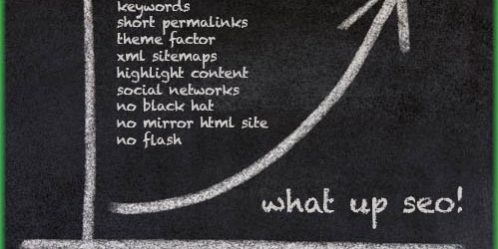 keywords
short permalinks
theme factor
xml sitemaps
highlight content
social networks
no black hat
no mirror html site
no flash
what up seo!